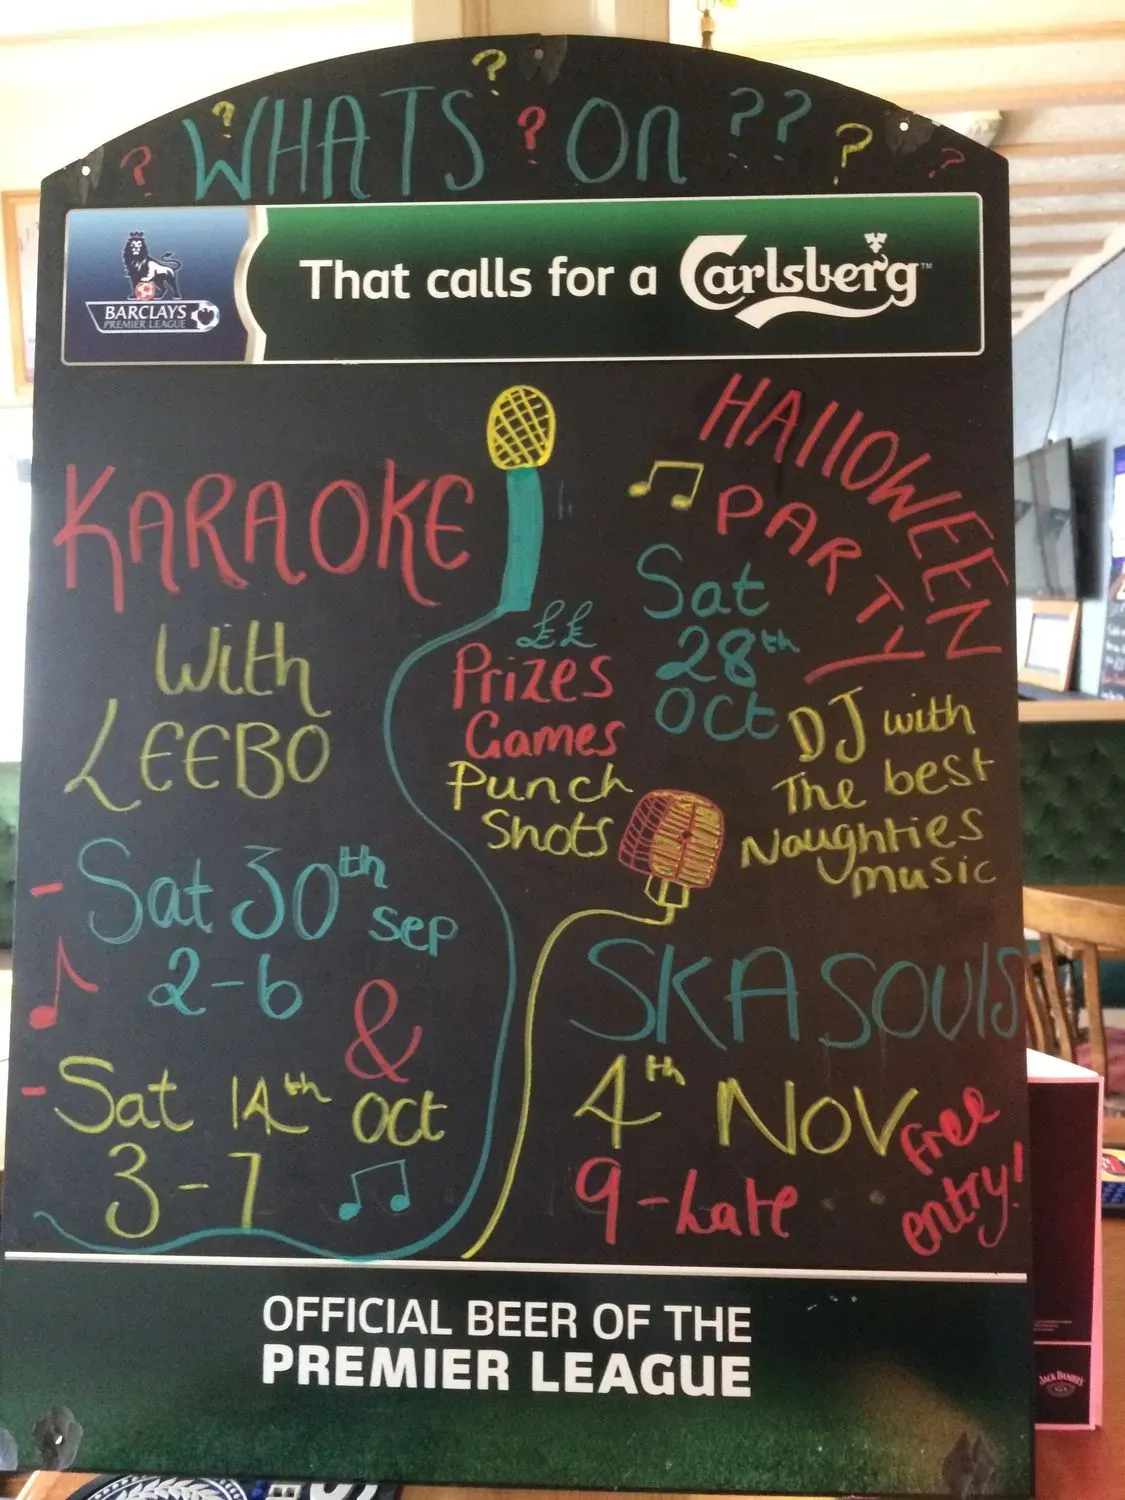 ? ? ? ? ? ? ? ?
WHATS ON
BARCLAYS
PREMIER LEAGUE
That calls for a Carlsberg™
KARAOKE
With
LEEBO
Sat 30th
Sep
2-6
&
Sat 14th Oct
3-7
££
Prizes
Games
Punch
Shots
HAllOWEEN
PARTY
Sat
28th
Oct
DJ with
The best
Naughties
music
SKA SOUlS
4th NOV
9-Late
Free
entry!
OFFICIAL BEER OF THE
PREMIER LEAGUE
JACK DANIEL'S